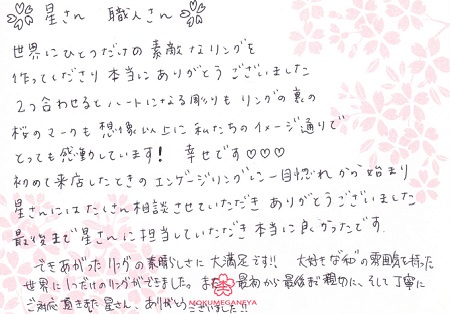 星さん 職人さん
世界にひとつだけの素敵なリングを
作ってくださり本当にありがとうございました
2つ合わせるとハートになる彫りもリングの裏の
桜のマークも想像以上に私たちのイメージ通りで
とっても感動しています! 幸せです♡♡♡
初めて来店したときのエンゲージリングに一目惚れから始まり
星さんにはたくさん相談させていただきありがとうございました
最後まで星さんに担当していただき本当に良かったです.
できあがったリングの素晴らしさに大満足です!! 大好きな“和”の雰囲気を持った
世界に1つだけのリングができました。また、最初から最後まで親切に、そして丁寧に
ご対応頂きました星さん、ありがとうございました!!
MOKUMEGANEYA